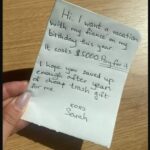 Hi. I want a vacation
with my fiance on my
birthday this year.
It costs $5000. Pay for it
I hope you saved up
enough after years
of cheap trash gift
for me
xoxo
Sarah